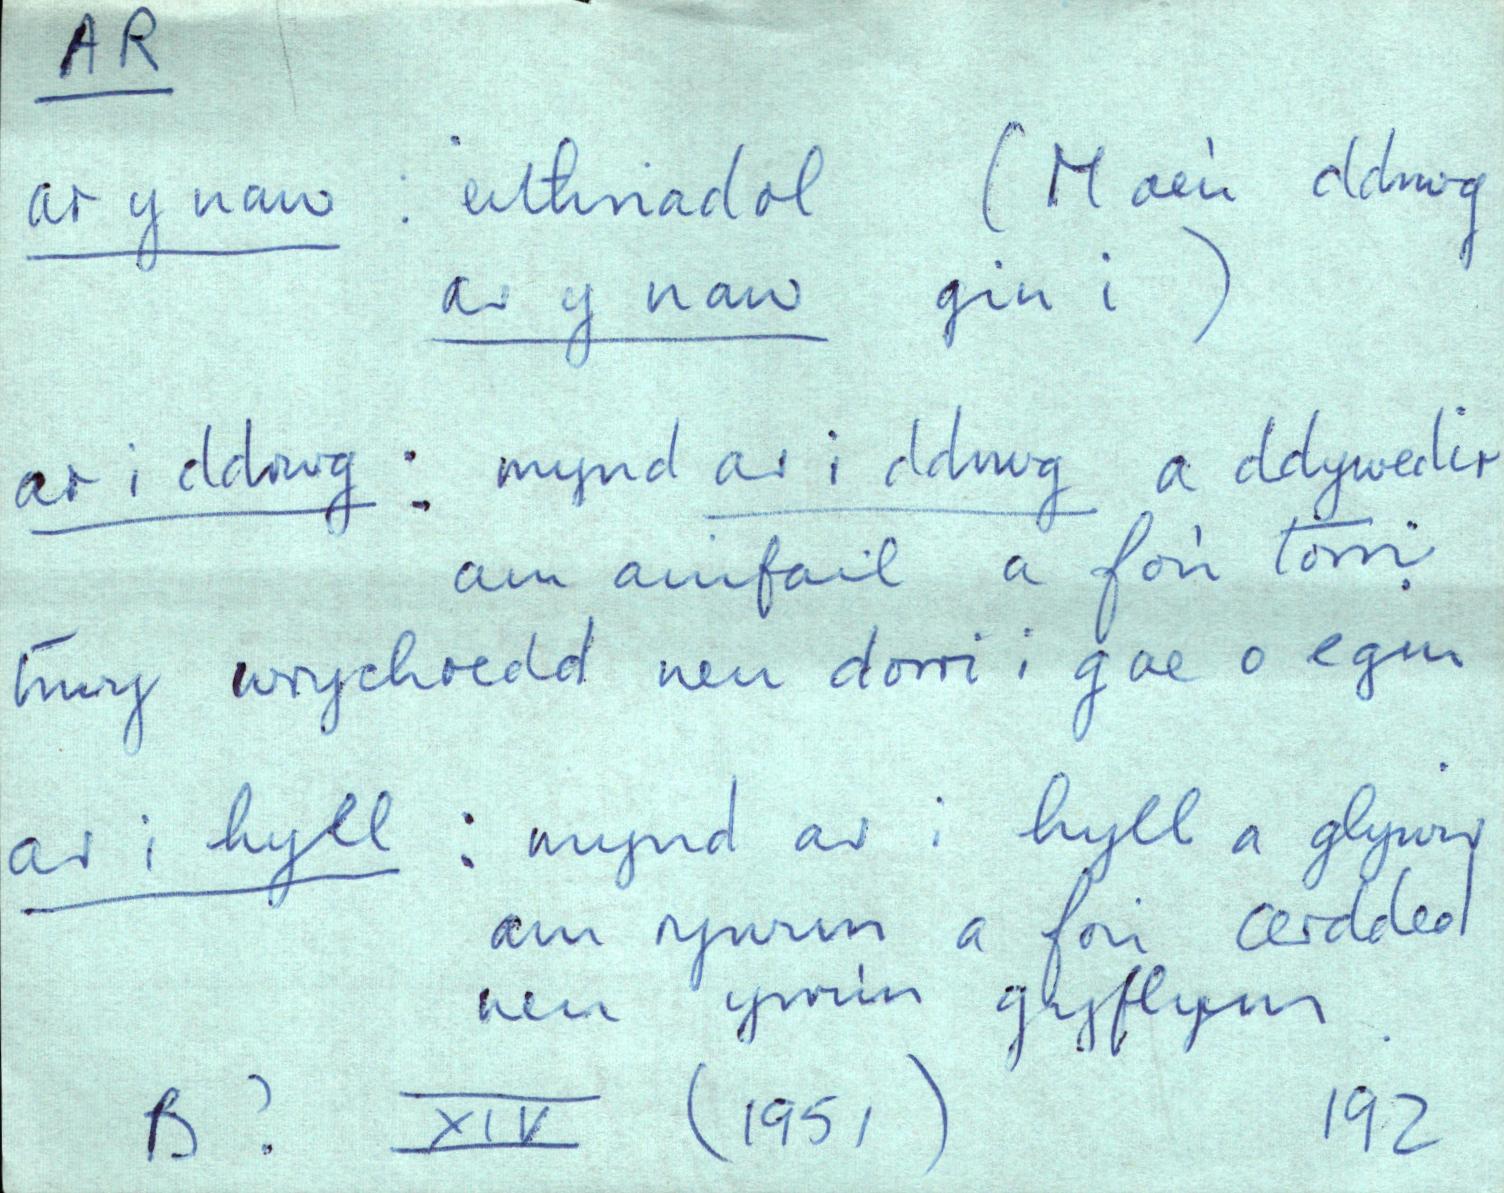 AR
ar y naw : eithriadol (Mae'n ddrwg
ar y naw gin i)
ar i ddrwg : mynd ar i ddrwg a ddywedir
am anifail a fo'n torri
trwy wrychoedd neu dorri i gae o egin
ar i hyll : mynd ar i hyll a glywir
am rywun a fo'n cerdded
neu yrru'n gyflym.
B? XIV (1951) 192